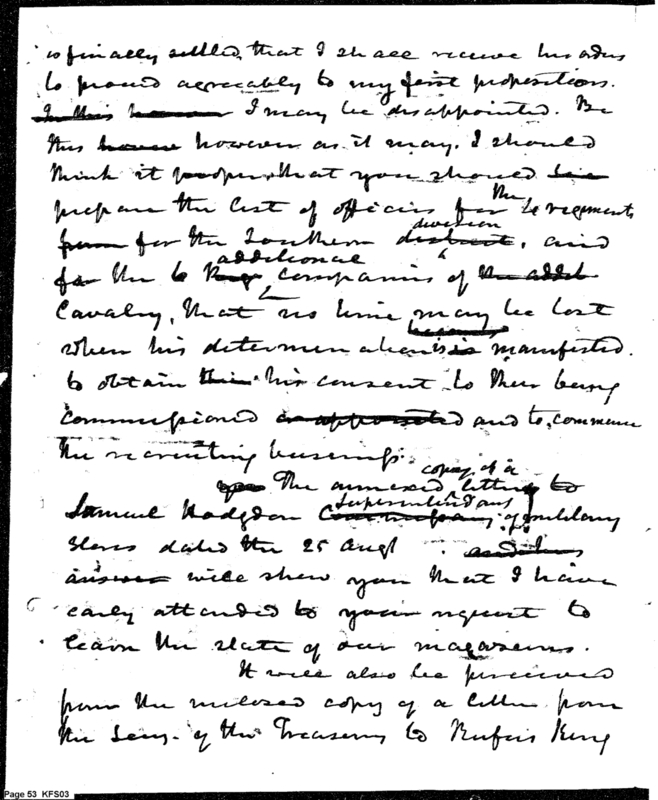 is finally settled, that I shall receive his orders
to proceed agreeably to my first propositions.
In this however I may be disappointed. Be
this however as it may, I should
think it proper, that you should
prepare the list of officers for the regiments
from for the Southern district, division and
for the 6 additional companies of the addit
Cavalry, that no time may be lost
when his determination is is manifested.
to obtain this his consent to their being
commissioned or appointed and to commence
the recruiting business.
The annexed copy of a letter to
Samuel Hodgdon Superintendant of military
stores dated the 25 Augt
answer will shew you that I have
early attended to your request to
learn the state of our magazines.
It will also be perceived
from the inclosed copy of a letter from
the Secy. of the Treasury to Rufus King
Page 53 KFS03